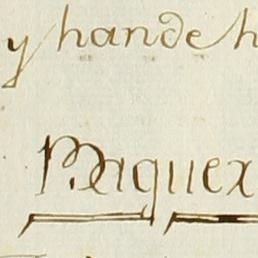 y han de h
Maquex